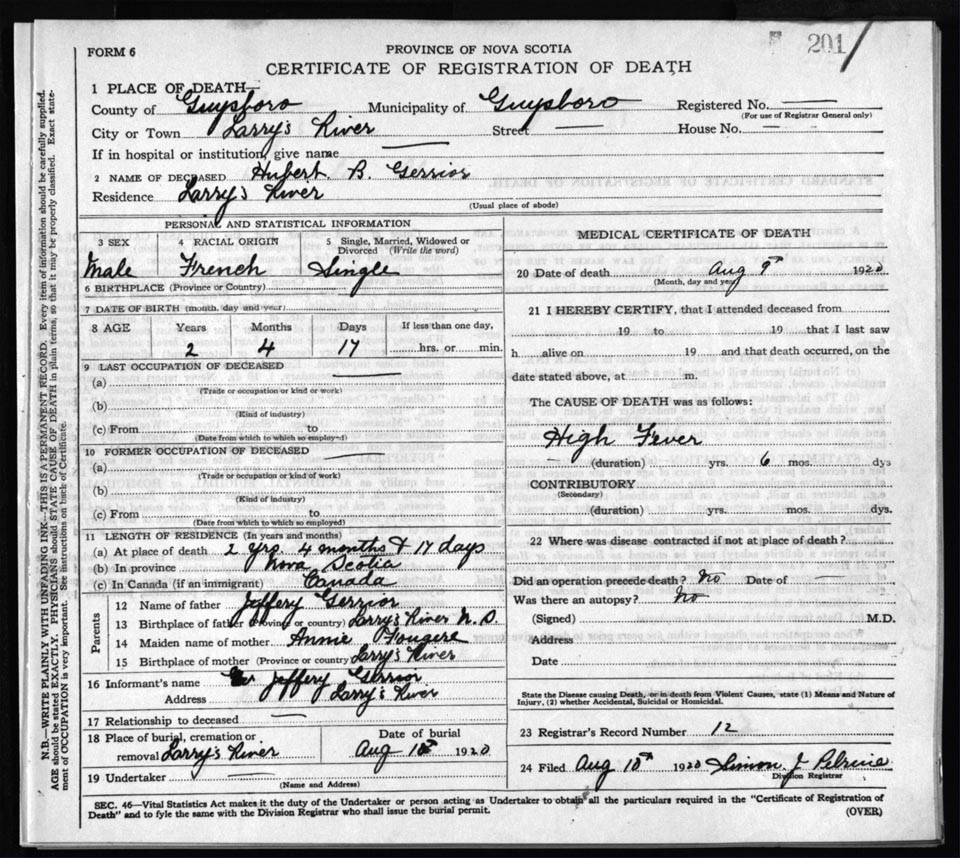 201
FORM 6
PROVINCE OF NOVA SCOTIA
CERTIFICATE OF REGISTRATION OF DEATH
1 PLACE OF DEATH—
County of Guysboro Municipality of Guysboro Registered No. —
(For use of Registrar General only)
City or Town Larry's River Street — House No. —
If in hospital or institution, give name —
2 NAME OF DECEASED Hubert B. Gerrior
Residence Larry's River
(Usual place of abode)
PERSONAL AND STATISTICAL INFORMATION
3 SEX 4 RACIAL ORIGIN 5 Single, Married, Widowed or Divorced (Write the word)
Male French Single
6 BIRTHPLACE (Province or Country)
7 DATE OF BIRTH (month, day and year)
8 AGE Years Months Days If less than one day,
2 4 17 hrs. or min.
9 LAST OCCUPATION OF DECEASED —
(a)
(Trade or occupation or kind of work)
(b)
(Kind of industry)
(c) From to
(Date from which to which so employed)
10 FORMER OCCUPATION OF DECEASED —
(a)
(Trade or occupation or kind of work)
(b)
(Kind of industry)
(c) From to
(Date from which to which so employed)
11 LENGTH OF RESIDENCE (In years and months)
(a) At place of death 2 yrs. 4 months & 17 days
(b) In province Nova Scotia
(c) In Canada (if an immigrant) Canada
Parents
12 Name of father Jeffery Gerrior
13 Birthplace of father (Province or country) Larry's River N.S.
14 Maiden name of mother Annie Fougere
15 Birthplace of mother (Province or country) Larry's River
16 Informant's name Jeffery Gerrior
Address Larry's River
17 Relationship to deceased —
18 Place of burial, cremation or removal Larry's River
Date of burial
Aug 10th 1920
19 Undertaker —
(Name and Address)
MEDICAL CERTIFICATE OF DEATH
20 Date of death Aug 9th 1920
(Month, day and year)
21 I HEREBY CERTIFY, that I attended deceased from
19 to 19 that I last saw
h alive on 19 and that death occurred, on the
date stated above, at m.
The CAUSE OF DEATH was as follows:
High Fever
(duration) yrs. 6 mos. dys
CONTRIBUTORY
(Secondary)
(duration) yrs. mos. dys.
22 Where was disease contracted if not at place of death?
Did an operation precede death? No Date of —
Was there an autopsy? No
(Signed) M.D.
Address
Date
State the Disease causing Death, or in death from Violent Causes, state (1) Means and Nature of
Injury, (2) whether Accidental, Suicidal or Homicidal.
23 Registrar's Record Number 12
24 Filed Aug 10th 1920 Simon J Pelrine
Division Registrar
SEC. 46—Vital Statistics Act makes it the duty of the Undertaker or person acting as Undertaker to obtain all the particulars required in the "Certificate of Registration of
Death" and to fyle the same with the Division Registrar who shall issue the burial permit.
(OVER)
N.B.—WRITE PLAINLY WITH UNFADING INK—THIS IS A PERMANENT RECORD. Every item of information should be carefully supplied.
AGE should be stated EXACTLY. PHYSICIANS should STATE CAUSE OF DEATH in plain terms, so that it may be properly classified. Exact state-
ment of OCCUPATION is very important. See instructions on back of Certificate.